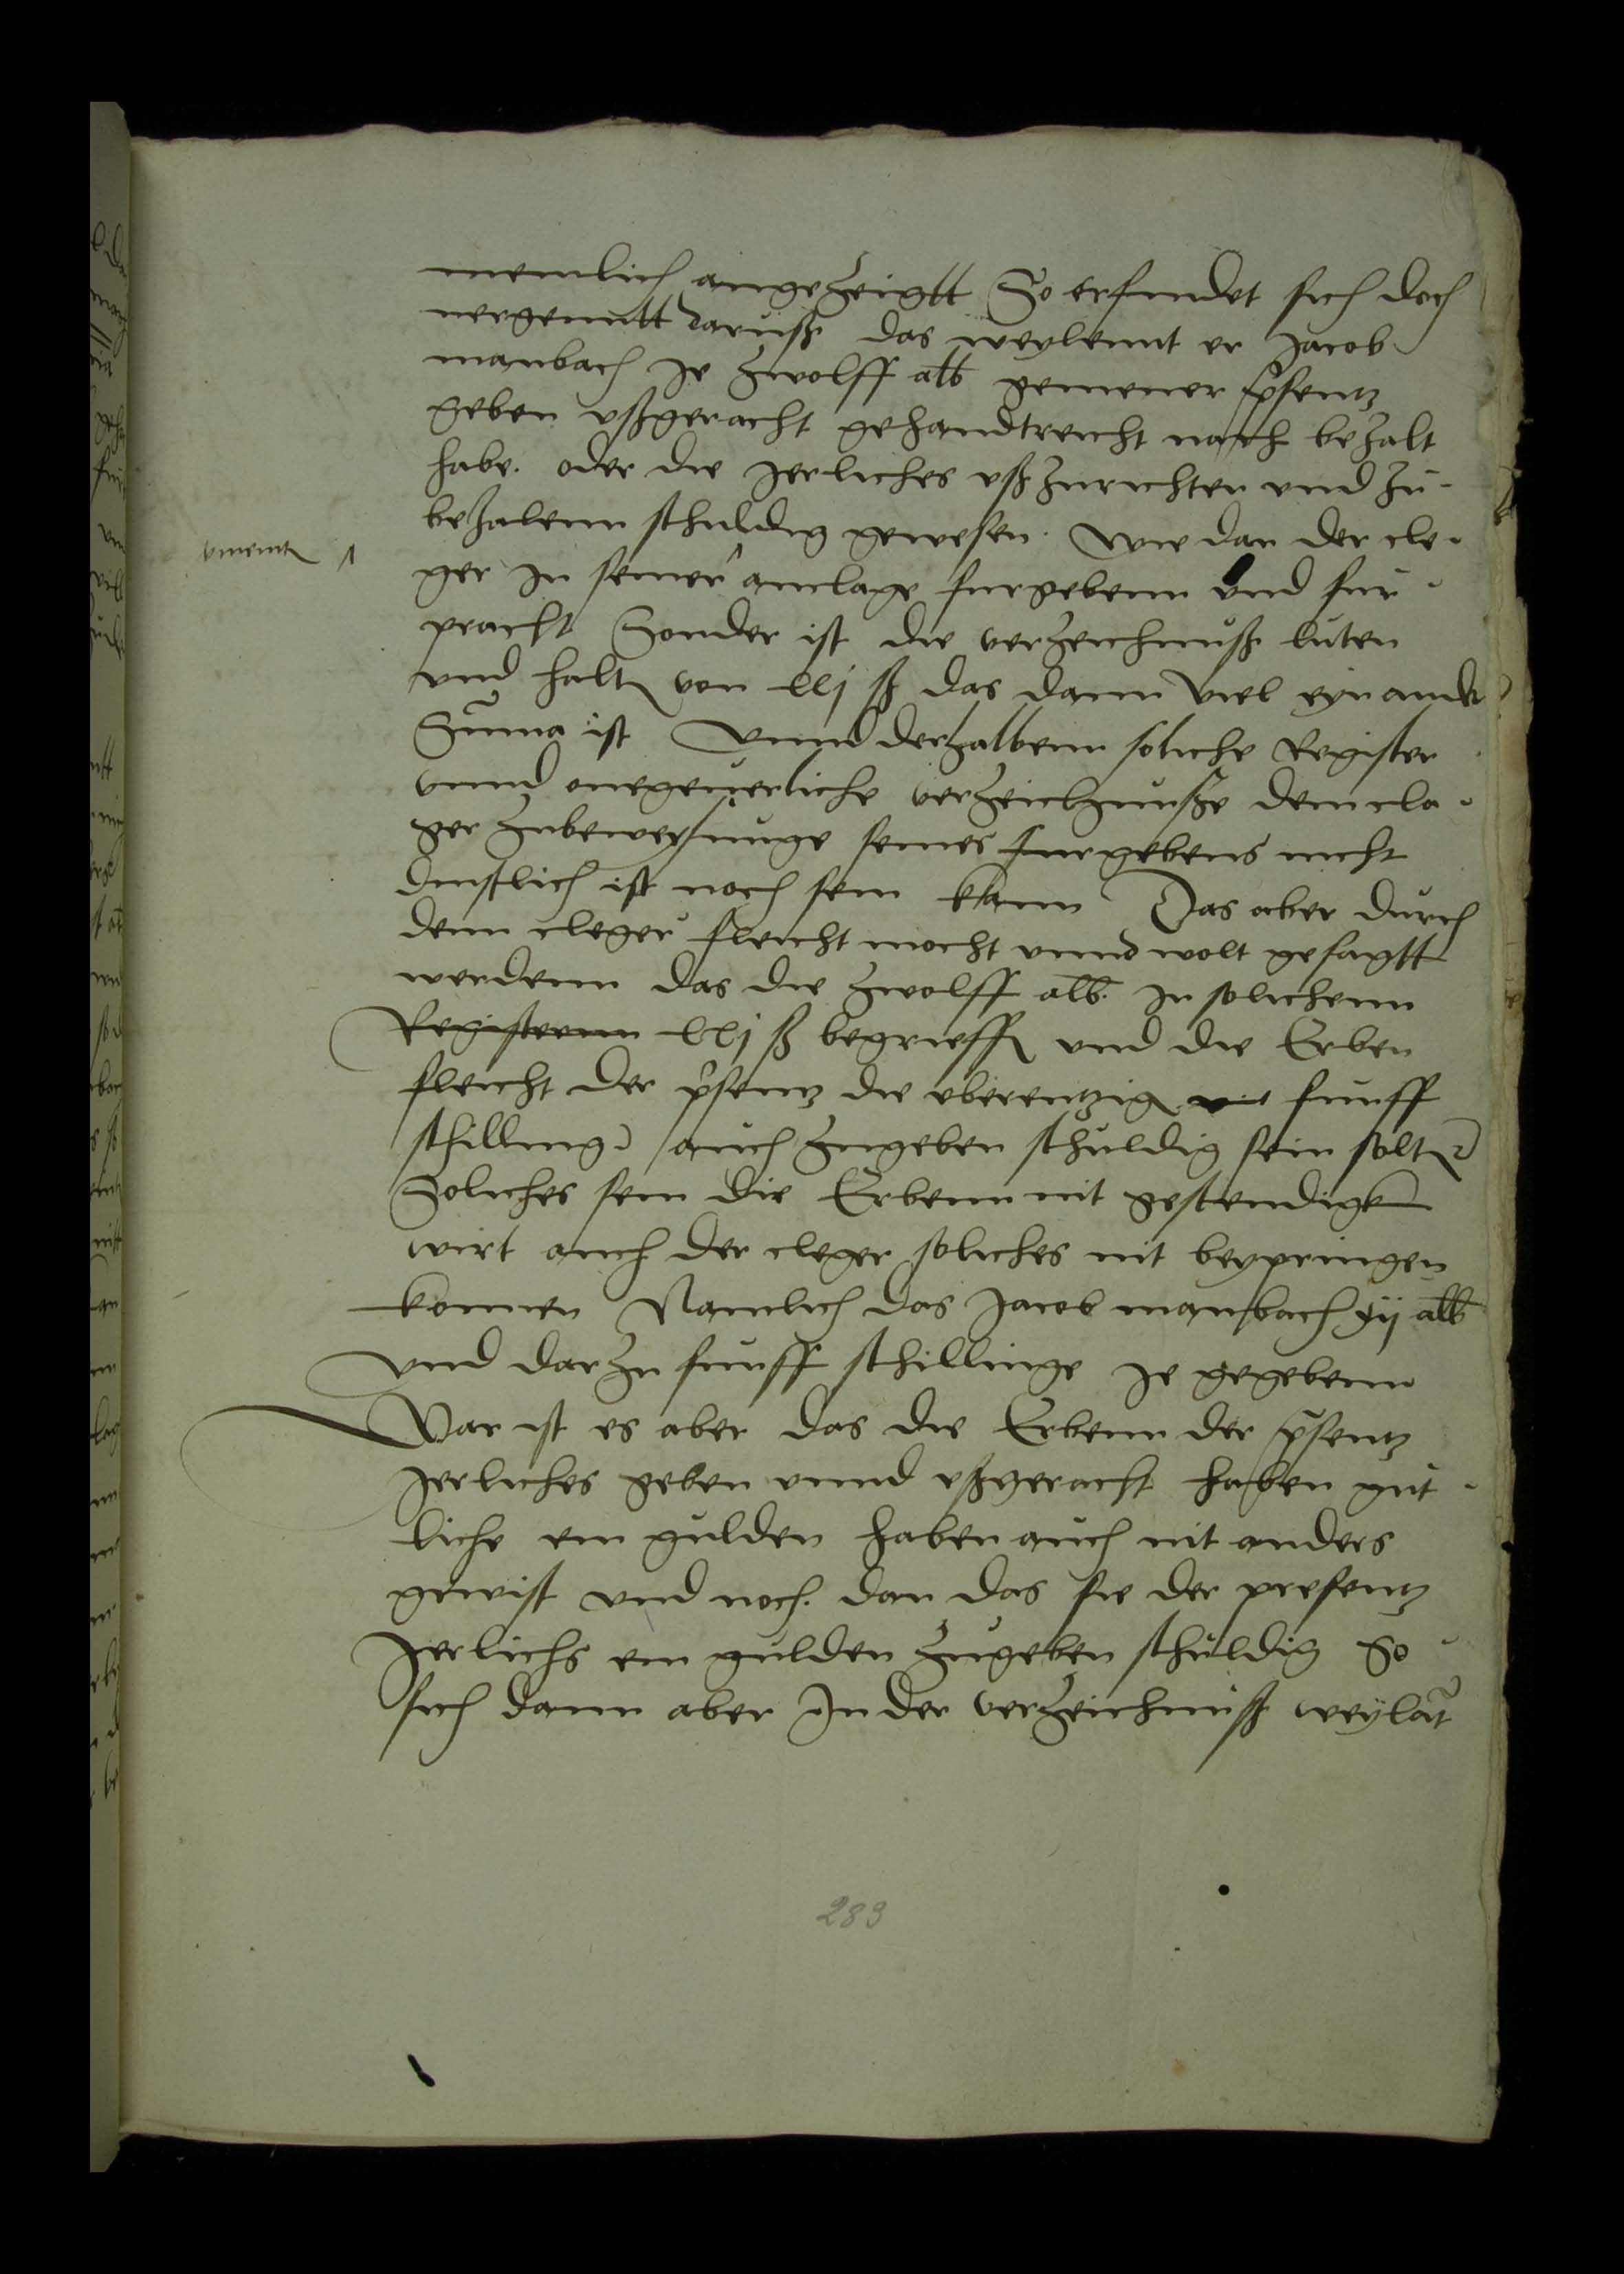 nemlich angezeigtt So erfindet sich doch
nergenntt daruß das weylennt er Jacob
manbach Je zwolff alb gemener p̃sentz
geben vßgeracht gehandtreicht nach bezalt
habe. oder die Jerliches vßzurichten vnd zu-
bezalenn schuldig gewesen. Wie dan der cle-
ger Jn seiner anclage furgebenn vnd fur-
pracht Sonder ist die verzeichnuß luten
vnd halt von xxj ß das dann viel eyn ander
Suma ist Vnnd derhalbenn soliche Register
vnnd onegeuerliche verzeichnuße dem cle-
ger zubeweysunge seines furgebens nicht
dinstlich ist noch sein kann Das aber durch
denn cleger fleicht mocht vnnd wolt gesagtt
werdenn das die zwolff alb. Jn solichenn
Registernn xxj ß begrieff vnd die Erben
fleicht der p̃sentz die vberentzig funff
schilling auch zugeben schuldig sein solt
Soliches sein die Erbenn nit gestendigk
wirt auch der cleger soliches nit beypringen
konnen Namlich das Jacob manbach xij alb
vnd darzu funff schillinge Je gegebenn
War ist es aber das die Erbenn der p̃sentz
Jerliches geben vnnd vßgeracht haben gut-
liche ein gulden haben auch nit anders
gewist vnd noch. dan das sie der presentz
Jerlichs ein gulden zugeben schuldig So
sich dann aber Jn der verzeichnuß weylãt
283